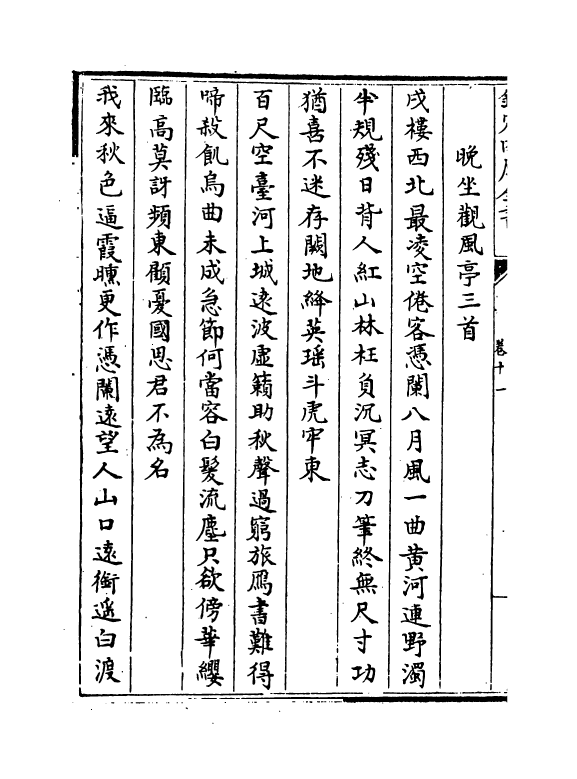 晚坐觀風亭三首
戍樓西北最凌空倦客憑闌八月風一曲黄河連野濁
半規殘日背人紅山林枉負沉冥志刀筆終無尺寸功
猶喜不迷存闕地絳英瑶斗虎牢東
百尺空臺河上城遠波虛籟助秋聲過窮旅鴈書難得
啼殺飢烏曲未成急節何當容白髪流塵只欲傍華纓
臨高莫訝頻東顧憂國思君不為名
我來秋色逼霞曛更作憑闌遠望人山口遠銜遥白渡
卷十一